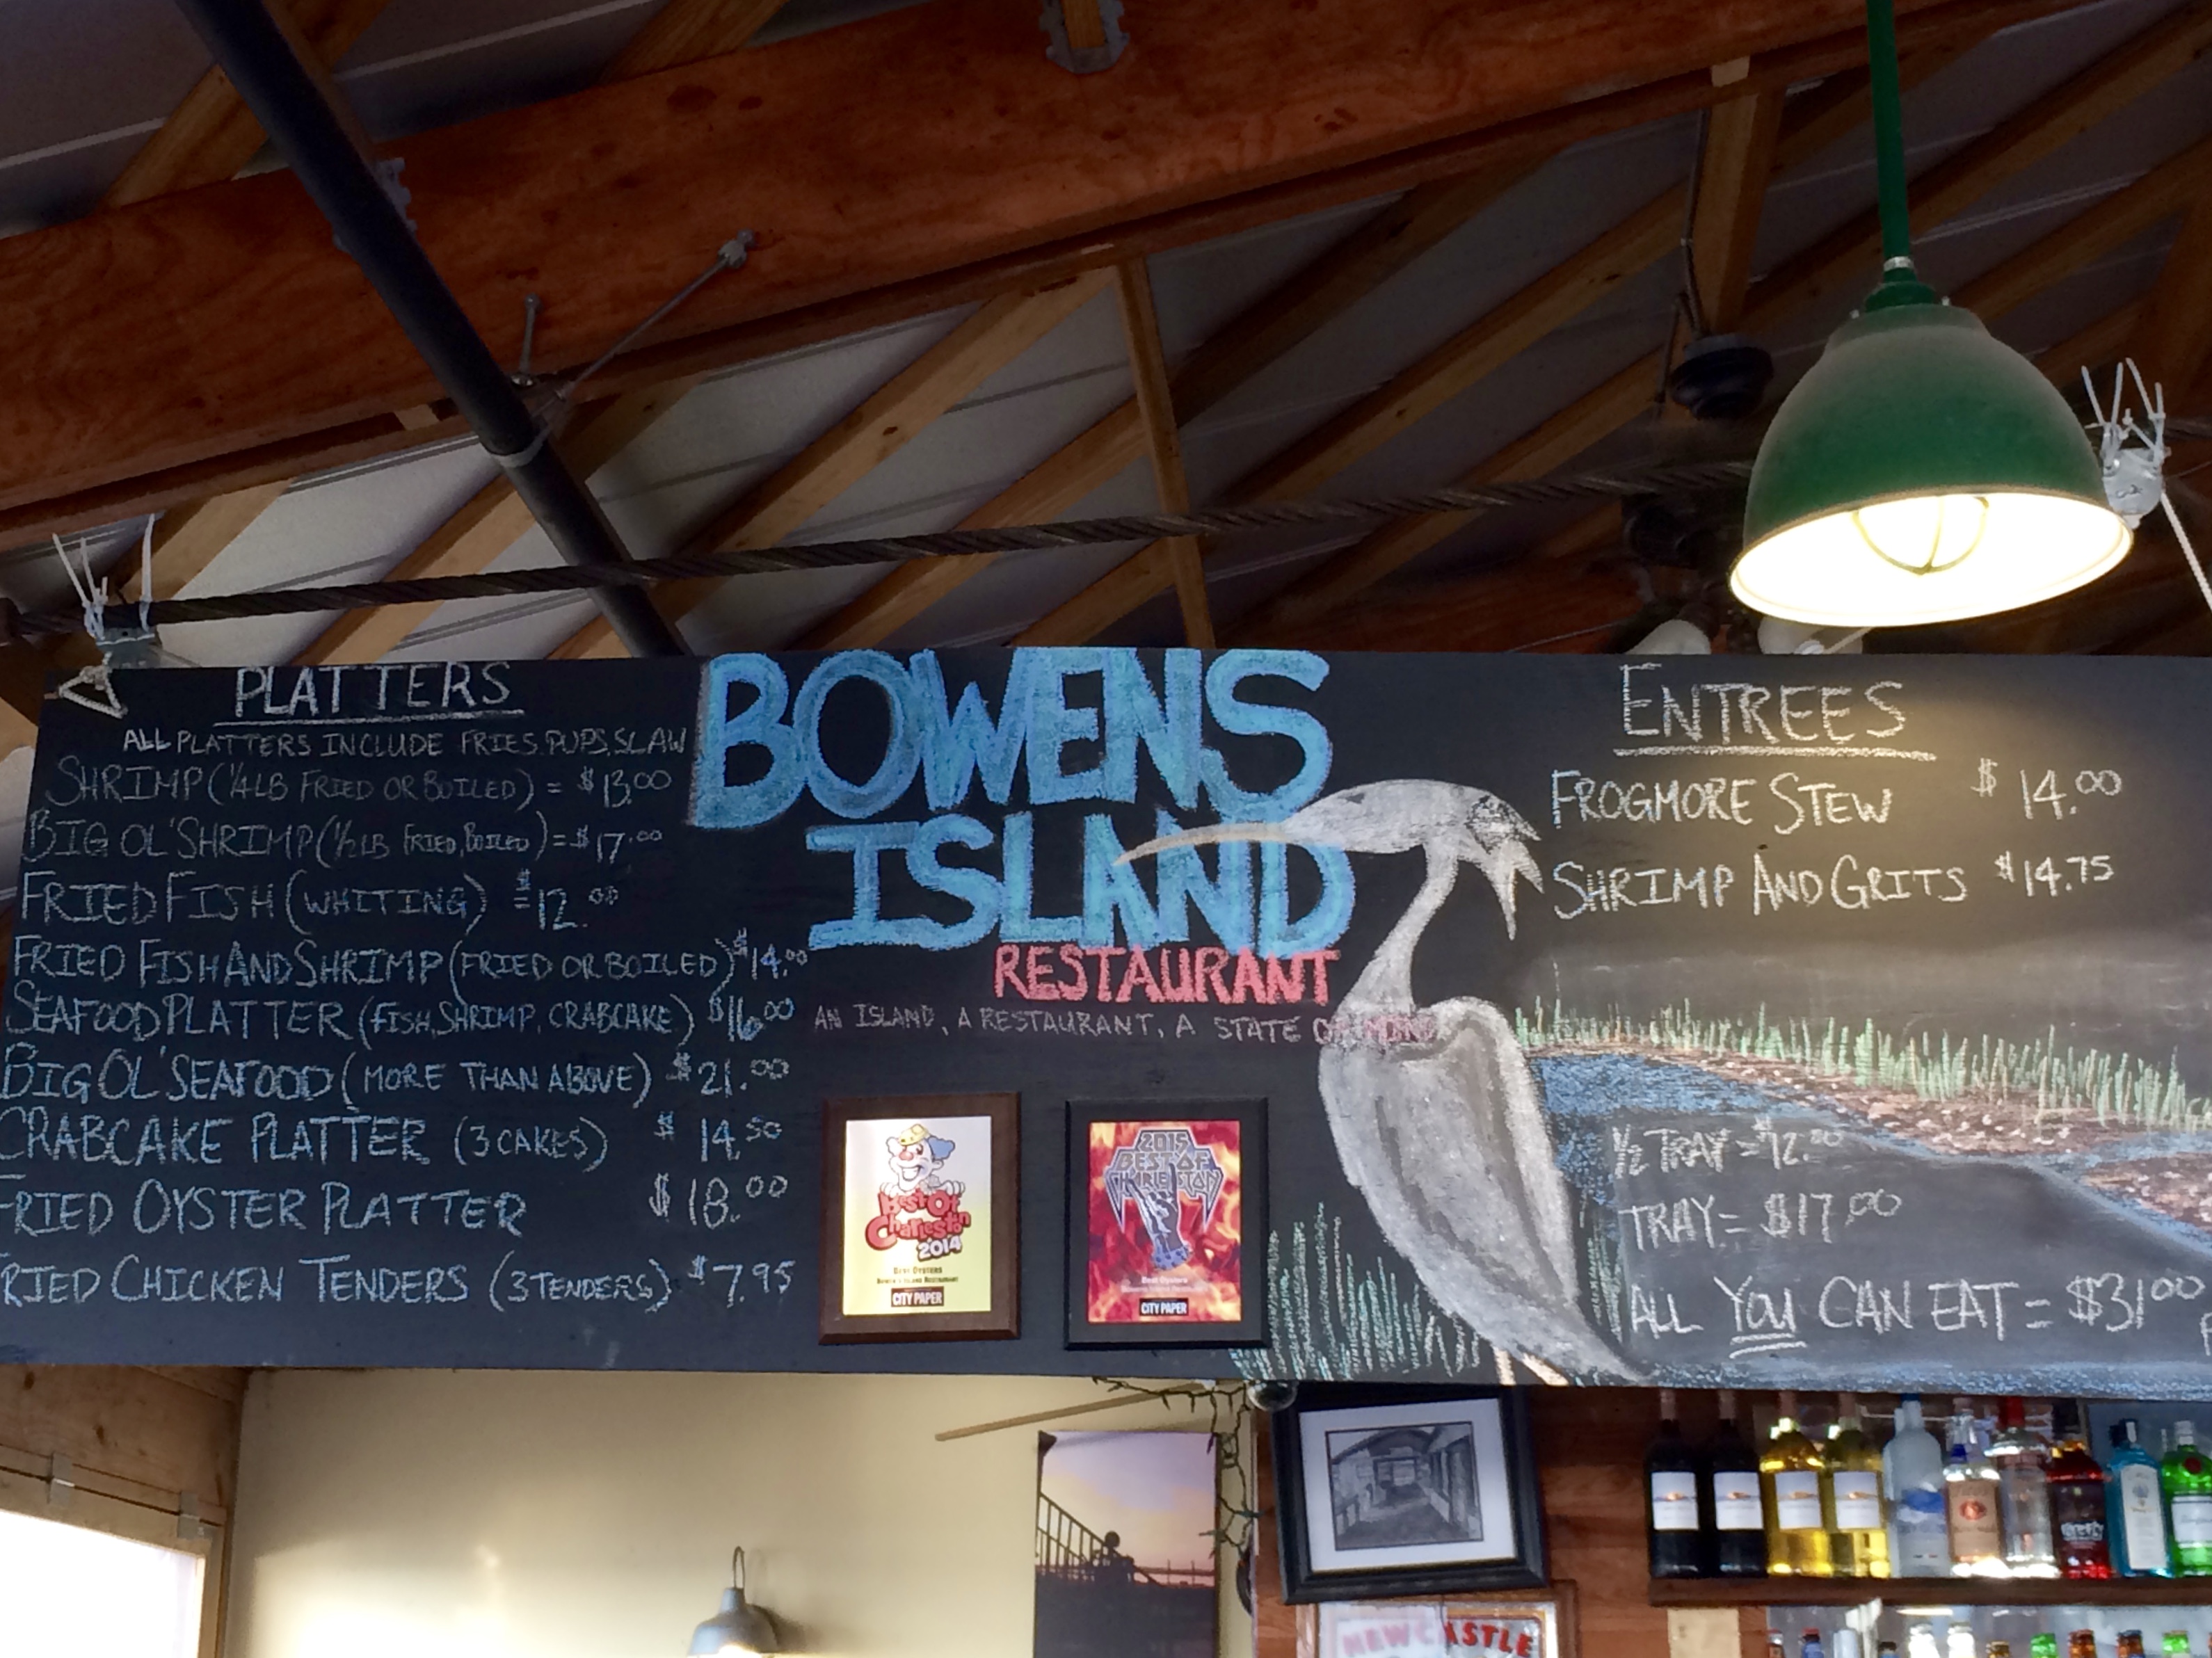 PLATTERS
ALL PLATTERS INCLUDE FRIES, PUPS, SLAW
SHRIMP (1/4 LB FRIED OR BOILED) = $13.00
BIG OL' SHRIMP (1/2 LB FRIED, BOILED) = $17.00
FRIED FISH (WHITING) $12.00
FRIED FISH AND SHRIMP (FRIED OR BOILED) $14.00
SEAFOOD PLATTER (FISH, SHRIMP, CRABCAKE) $16.00
BIG OL' SEAFOOD (MORE THAN ABOVE) $21.00
CRABCAKE PLATTER (3 CAKES) $14.50
FRIED OYSTER PLATTER $18.00
FRIED CHICKEN TENDERS (3 TENDERS) $7.95
BOWENS
ISLAND
RESTAURANT
AN ISLAND, A RESTAURANT, A STATE OF MIND
Best Of
Charleston
2014
Best Oysters
Bowen's Island Restaurant
CITY PAPER
2015
BEST OF
CHARLESTON
Best Oysters
CITY PAPER
ENTREES
FROGMORE STEW $14.00
SHRIMP AND GRITS $14.75
1/2 TRAY = $12.00
TRAY = $17.00
ALL YOU CAN EAT = $31.00
NEWCASTLE